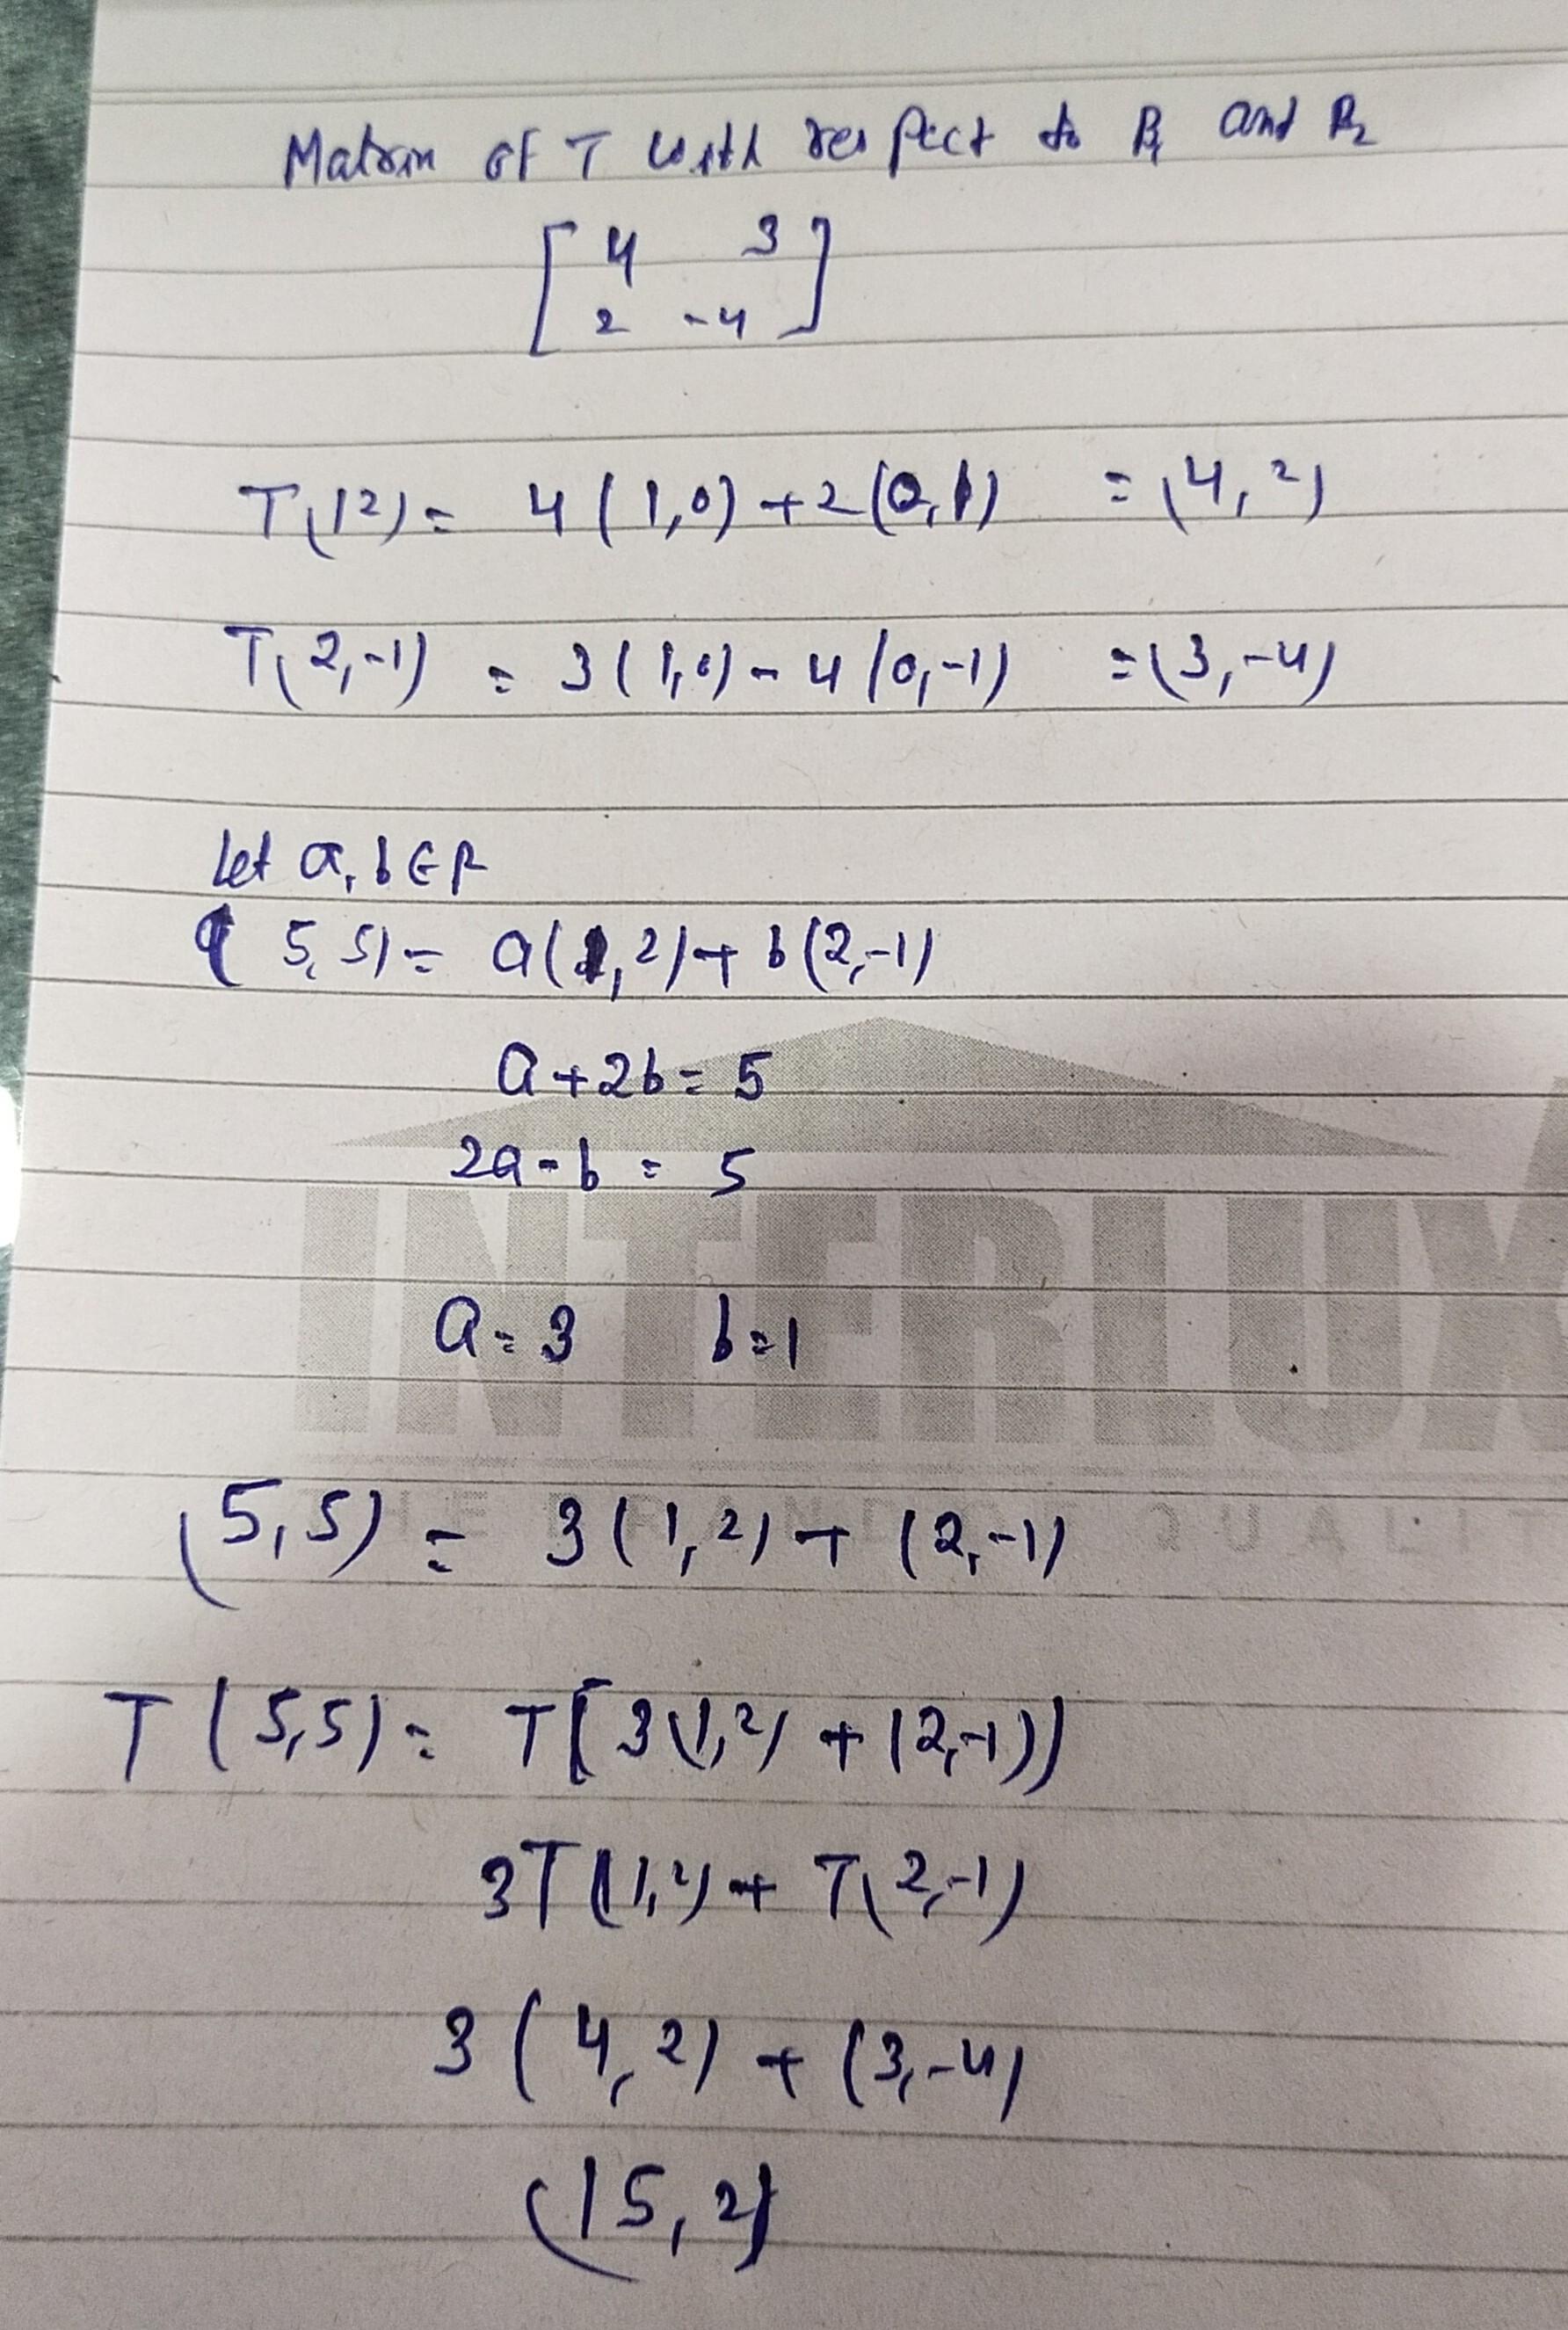 Matrix of T with respect to B1 and B2
[ 4 3
2 -4 ]
T(12) = 4(1,0)+2(0,1) = (4,2)
T(2,-1) = 3(1,0)-4(0,-1) = (3,-4)
Let a,b∈R
(5,5) = a(1,2)+b(2,-1)
a+2b=5
2a-b=5
INTERLUX
a=3 b=1
(5,5) = 3(1,2)+(2,-1)
QUALIT
T(5,5) = T[3(1,2)+(2,-1))
3T(1,2)+T(2,-1)
3(4,2)+(3,-4)
(15,2)